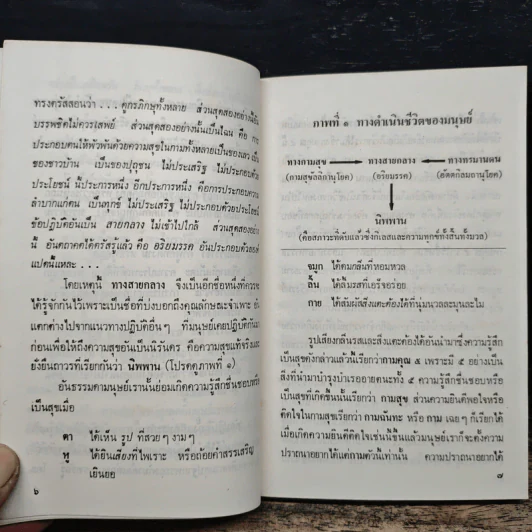 ทรงตรัสสอนว่า . . . ดูกรภิกษุทั้งหลาย ส่วนสุดสองอย่างนี้อัน
บรรพชิตไม่ควรเสพย์ ส่วนสุดสองอย่างนั้นเป็นไฉน คือ การ
ประกอบตนให้พัวพันด้วยความสุขในกามทั้งหลายเป็นของเลว เป็น
ของชาวบ้าน เป็นของปุถุชน ไม่ประเสริฐ ไม่ประกอบด้วย
ประโยชน์ นี้ประการหนึ่ง อีกประการหนึ่ง คือการประกอบความ
ลำบากแก่ตน เป็นทุกข์ ไม่ประเสริฐ ไม่ประกอบด้วยประโยชน์
ข้อปฏิบัติอันเป็น สายกลาง ไม่เข้าไปใกล้ ส่วนสุดสองอย่าง
นี้ อันตถาคตได้ตรัสรู้แล้ว คือ อริยมรรค อันประกอบด้วยองค์
แปดนี้แหละ . . .
โดยเหตุนี้ ทางสายกลาง จึงเป็นอีกชื่อหนึ่งที่ควรจะ
ได้รู้จักกันไว้เพราะเป็นชื่อที่บ่งบอกถึงคุณลักษณะจำเพาะ อัน
แตกต่างไปจากแนวทางปฏิบัติอื่นๆ ที่มนุษย์เคยปฏิบัติกันมา
ก่อนเพื่อให้ถึงความสุขอันเป็นนิรันดร คือความสุขแท้จริงและ
ยั่งยืนถาวรที่เรียกกันว่า นิพพาน (โปรดดูภาพที่ ๑)
อันธรรมดามนุษย์เรานั้นย่อมเกิดความรู้สึกชื่นชอบหรือ
เป็นสุขเมื่อ
ตา ได้เห็น รูป ที่สวยๆ งามๆ
หู ได้ยินเสียงที่ไพเราะ หรือถ้อยคำสรรเสริญ
เยินยอ
๖
ภาพที่ ๑ ทางดำเนินชีวิตของมนุษย์
ทางกามสุข ทางสายกลาง ทางทรมานตน
(กามสุขัลลิกานุโยค) (อริยมรรค) (อัตตกิลมถานุโยค)
นิพพาน
(คือสภาวะที่ดับแล้วซึ่งกิเลสและความทุกข์ทั้งสิ้นทั้งมวล)
จมูก ได้ดมกลิ่นที่หอมหวล
ลิ้น ได้ลิ้มรสที่เอร็จอร่อย
กาย ได้สัมผัสสิ่งแตะต้องได้ที่นุ่มนวลละมุนละไม
รูปเสียงกลิ่นรสและสิ่งแตะต้องได้อันนำมาซึ่งความรู้สึก
เป็นสุขดังกล่าวแล้วนี้เรียกว่ากามคุณ ๕ เพราะมี ๕ อย่างเป็น
สิ่งที่นำมาบำรุงบำเรออายตนะทั้ง ๕ ความรู้สึกชื่นชอบหรือ
เป็นสุขที่เกิดขึ้นนั้นเรียกว่า กามสุข ส่วนความยินดีพอใจหรือ
ติดใจในกามสุขเรียกว่า กามฉันทะ หรือ กาม เฉยๆ ก็เรียกได้
เมื่อเกิดความยินดีติดใจเช่นนี้ขึ้นแล้วมนุษย์เราก็จะตั้งความ
ปรารถนาอยากได้แต่กามตัวนี้เท่านั้น ความปรารถนาอยากได้
๗